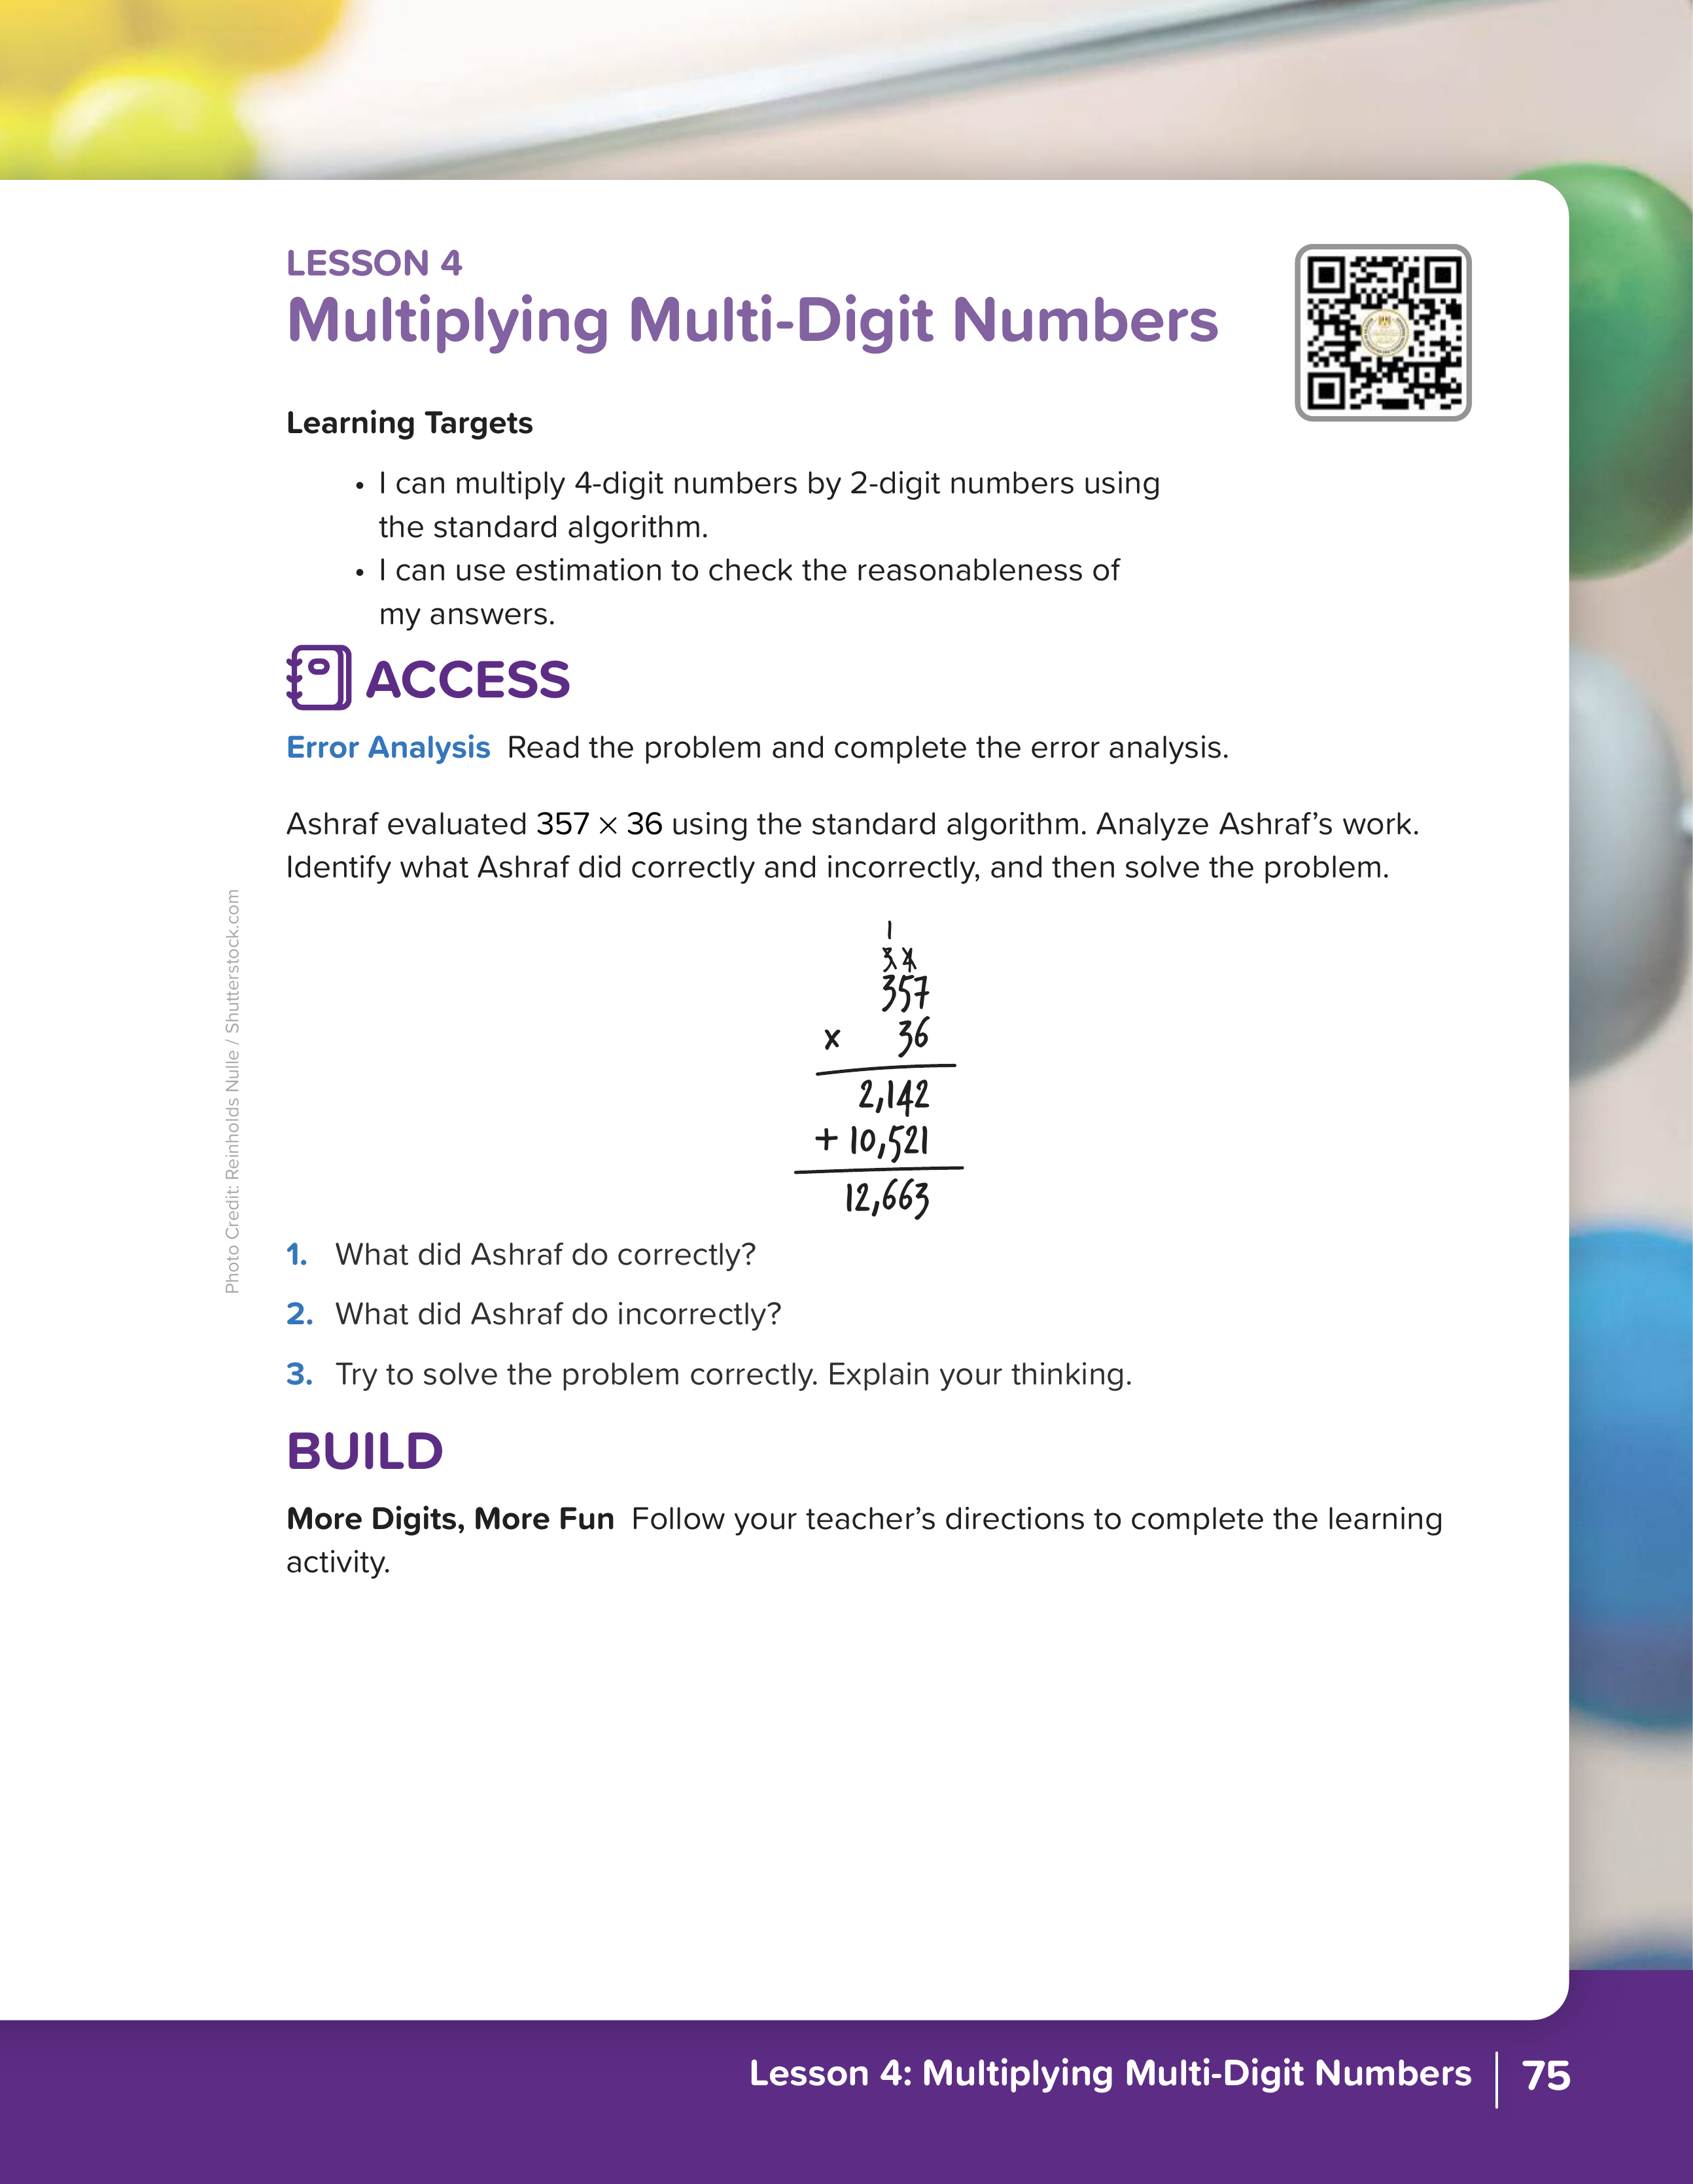 LESSON 4
Multiplying Multi-Digit Numbers
Learning Targets
• I can multiply 4-digit numbers by 2-digit numbers using
the standard algorithm.
• I can use estimation to check the reasonableness of
my answers.
ACCESS
Error Analysis Read the problem and complete the error analysis.
Ashraf evaluated 357 × 36 using the standard algorithm. Analyze Ashraf’s work.
Identify what Ashraf did correctly and incorrectly, and then solve the problem.
1
3 4
357
x 36
2,142
+ 10,521
12,663
1. What did Ashraf do correctly?
2. What did Ashraf do incorrectly?
3. Try to solve the problem correctly. Explain your thinking.
BUILD
More Digits, More Fun Follow your teacher’s directions to complete the learning
activity.
Photo Credit: Reinholds Nulle / Shutterstock.com
Lesson 4: Multiplying Multi-Digit Numbers 75